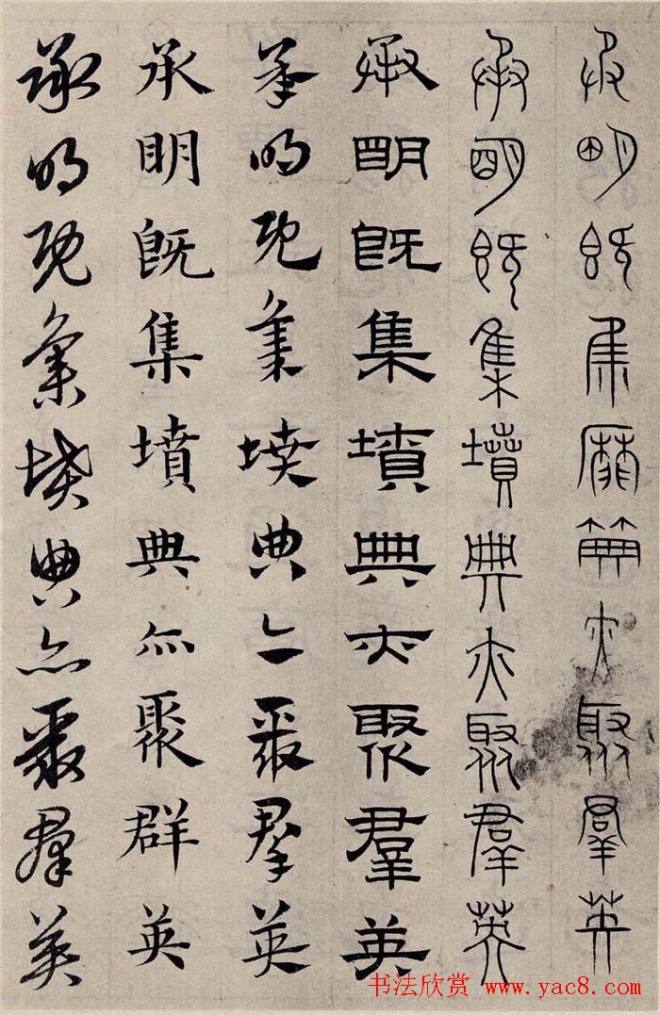 承明既集墳典亦聚群英
承明既集墳典亦聚群英
承明既集墳典亦聚群英
承明既集墳典亦聚群英
承明既集墳典亦聚群英
承明既集墳典亦聚群英
书法欣赏 www.yac8.com